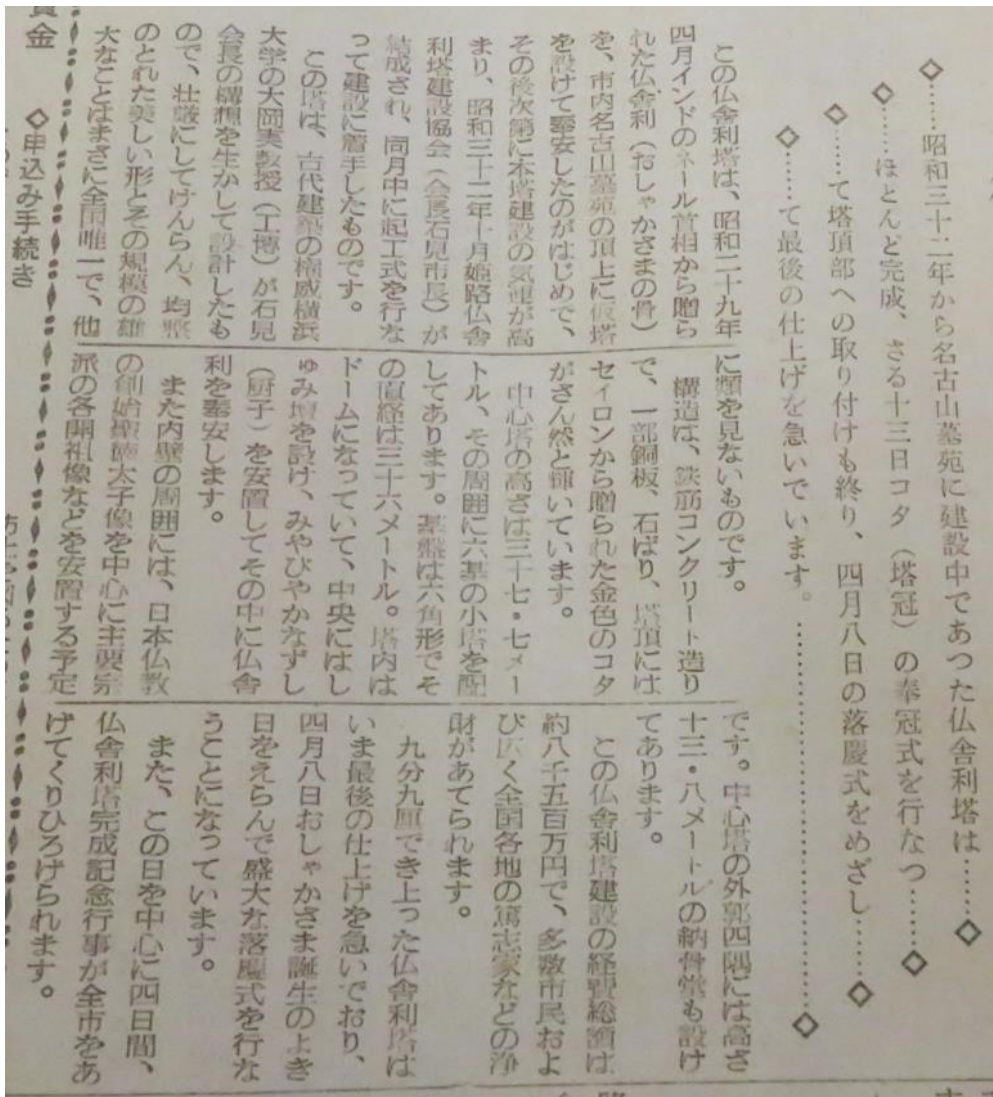 ◇……昭和三十二年から名古山墓苑に建設中であつた仏舎利塔は……◇
◇……ほとんど完成、さる十三日コタ（塔冠）の奉冠式を行なつ……◇
◇……て塔頂部への取り付けも終り、四月八日の落慶式をめざし……◇
◇……て最後の仕上げを急いでいます。……………………◇
この仏舎利塔は、昭和二十九年
四月インドのネール首相から贈ら
れた仏舎利（おしゃかさまの骨）
を、市内名古山墓苑の頂上に仮塔
を設けて奉安したのがはじめで、
その後次第に本塔建設の気運が高
まり、昭和三十二年十月姫路仏舎
利塔建設協会（会長石見市長）が
結成され、同月中に起工式を行な
って建設に着手したものです。
この塔は、古代建築の権威横浜
大学の大岡実教授（工博）が石見
会長の構想を生かして設計したも
ので、壮厳にしてけんらん、均整
のとれた美しい形とその規模の雄
大なことはまさに全国唯一で、他
に類を見ないものです。
構造は、鉄筋コンクリート造り
で、一部銅板、石ばり、塔頂には
セイロンから贈られた金色のコタ
がさん然と輝いています。
中心塔の高さは三十七・七メー
トル、その周囲に六基の小塔を配
してあります。基盤は六角形でそ
の直経は三十六メートル。塔内は
ドームになっていて、中央にはし
ゅみ壇を設け、みやびやかなずし
（厨子）を安置してその中に仏舎
利を奉安します。
また内壁の周囲には、日本仏教
の創始聖徳太子像を中心に主要宗
派の各開祖像などを安置する予定
です。中心塔の外郭四隅には高さ
十三・八メートルの納骨堂も設け
てあります。
この仏舎利塔建設の経費総額は
約八千五百万円で、多数市民およ
び広く全国各地の篤志家などの浄
財があてられます。
九分九厘でき上った仏舎利塔は
いま最後の仕上げを急いでおり、
四月八日おしゃかさま誕生のよき
日をえらんで盛大な落慶式を行な
うことになっています。
また、この日を中心に四日間、
仏舎利塔完成記念行事が全市をあ
げてくりひろげられます。
金
◇申込み手続き